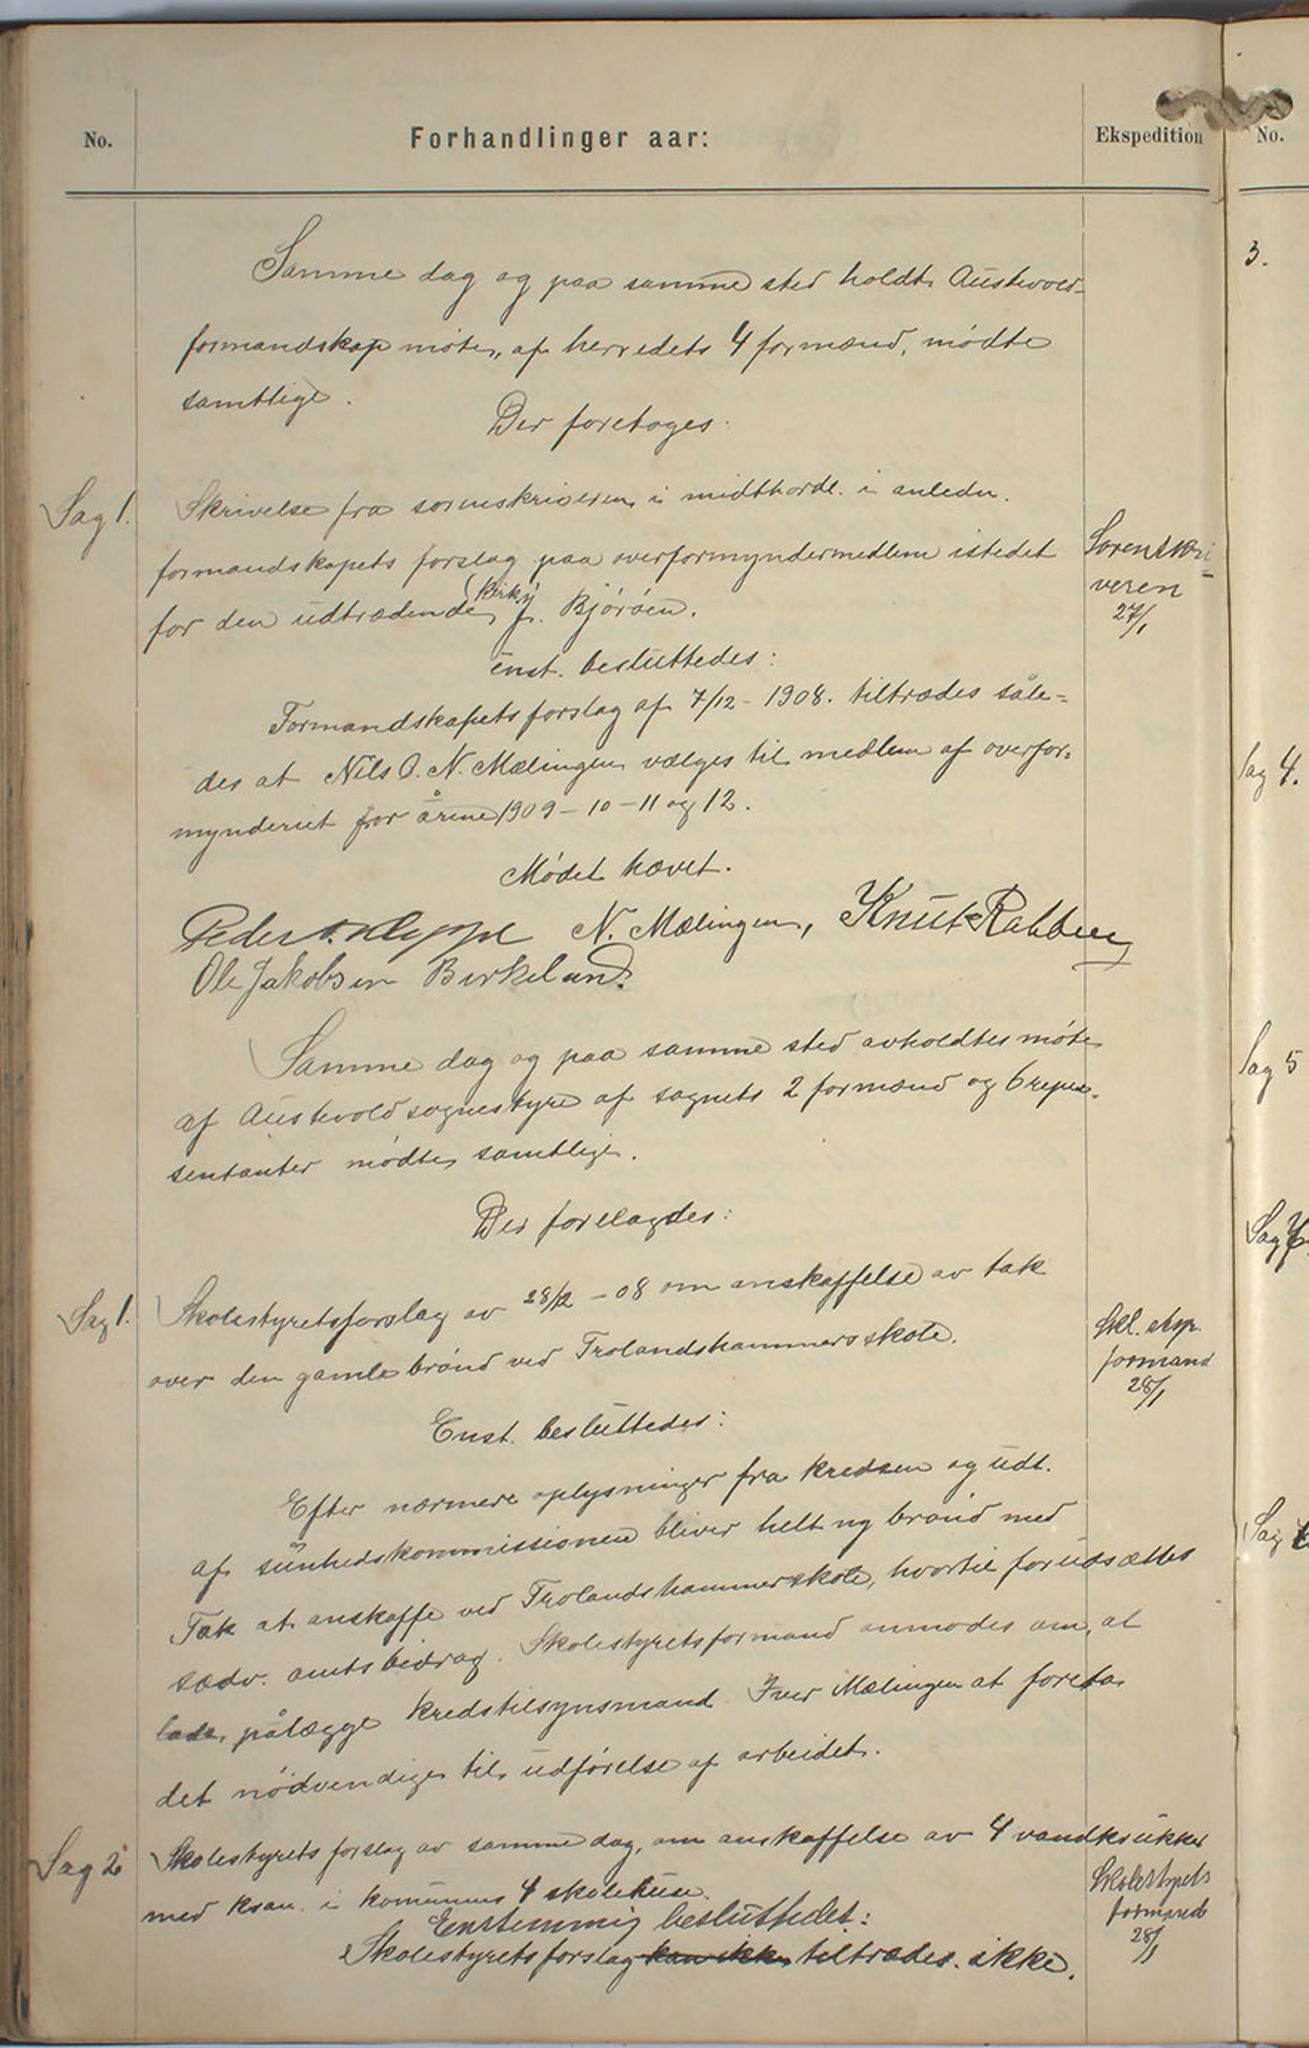 No.
Forhandlinger aar:
Ekspedition
No.
Samme dag og paa samme sted holdt Austevold-
formandskap møte, af herredets 4 formænd, mødte
samtlige.
Der foretoges:
Sag 1.
Skrivelse fra sorenskriveren i midthordl. i anledn.
formandskapets forslag paa overformyndermedlem istedet
for den udtrædende J. Bjørøen.
Sorenskri-
veren
27/1
enst. besluttedes:
Formandskapets forslag af 7/12 - 1908. tiltrædes såle-
des at Nils O. N. Mælingen vælges til medlem af overfor-
mynderiet for årene 1909 - 10 - 11 og 12.
Mødet hævet.
Peder N. Mælingen, Knut Rabben
Ole Jakobsen Birkeland.
Samme dag og paa samme sted avholdtes møte
af Austevold sognestyre af sognets 2 formænd og 6 repræ-
sentanter mødte samtlige.
Der forelagdes:
Sag 1.
Skolestyrets forslag av 28/12 - 08 om anskaffelse av tak
over den gamle brønd ved Trolandshammers skole.
Skl. eksp.
formand
28/1
Enst. besluttedes:
Efter nærmere oplysninger fra kredsen og udt.
af sunhedskommissionen bliver helt ny brønd med
Tak at anskaffe ved Trolandshammerskole, hvortil forudsættes
sædv. amtsbidrag. Skolestyrets formand anmodes om, at
lade pålægge kredstilsynsmand Iver Mælingen at foreta
det nødvendige til udførelse af arbeidet.
Sag 2
Skolestyrets forslag av samme dag, om anskaffelse av 4 vandkrukker
med kran i komunens 4 skolehuse.
Skolestyrets
formand
28/1
Enstemmig besluttedes:
Skolestyrets forslag kan ikke tiltrædes ikke.
3.
Sag 4.
Sag 5
Sag
Sag